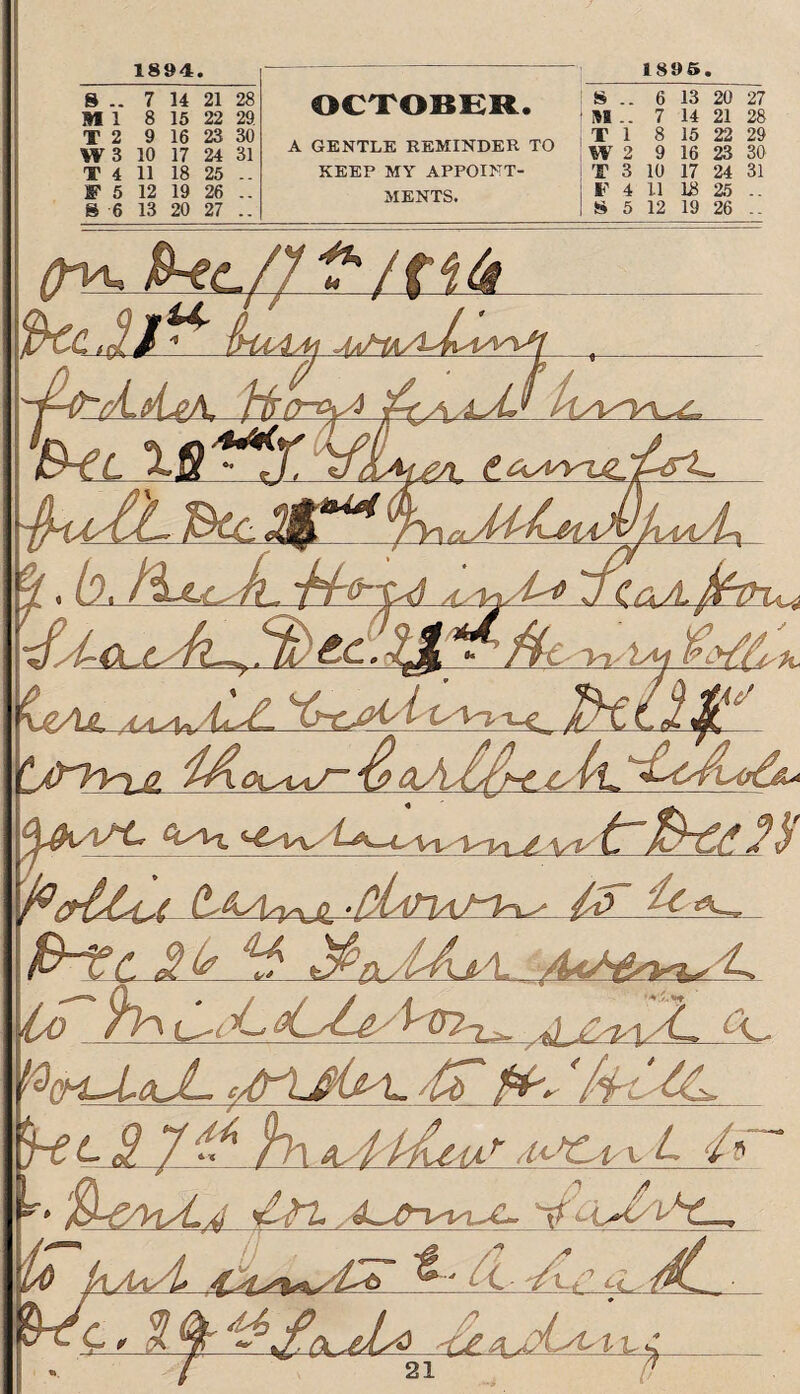 1894.
S .. 7 14 21 28
M 1 8 15 22 29
T 2 9 16 23 30
W 3 10 17 24 31
T 4 11 18 25 ..
F 5 12 19 26 ..
S 6 13 20 27 ..
OCTOBER.
A GENTLE REMINDER TO
KEEP MY APPOINT-
MENTS.
1895.
S .. 6 13 20 27
M .. 7 14 21 28
T 1 8 15 22 29
W 2 9 16 23 30
T 3 10 17 24 31
F 4 11 18 25 ..
S 5 12 19 26 ..
on Dec 17th 1894
Dec. 21st busy washing
fodder Hogs first time
Dec 22nd J. Sayer came for
bull Dec 22nd Matthew put
G. B. Beck Hogs into Tear
Stack. Dec. 23rd Henry Collin
here until bedtime Dec 24
Come Thaw
gave an entertainment Dec 25
Pollie came down to tea
Dec 26th Father went
to Middleton sent a
Postal order to H. Hill
Dec 27th Matthew went to
Dents for some Salve
to put unto
Dec. 29th Lads leading
21